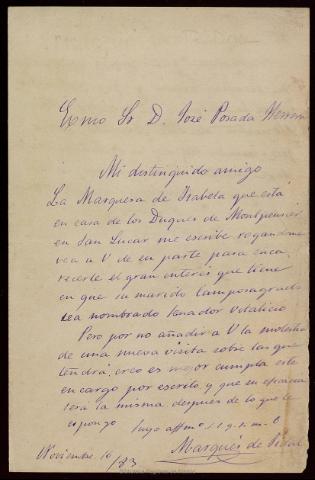 Exmo Sr D. José Posada Herrera
Mi distinguido amigo
La Marquesa de Isabela que está
en casa de los Duques de Montpensier
en San Lucar me escribe rogandome
vea a V de su parte para enca
recerle el gran interés que tiene
en que su marido Camposagrado
sea nombrado Senador Vitalicio
Pero por no añadir a V la molestia
de una nueva visita sobre las que
tendrá, creo es mejor cumpla este
encargo por escrito, y que su eficacia
será la misma despues de lo que le
expongo
Suyo affmo s s q. s. m. b
Marqués de
Noviembre 10/83